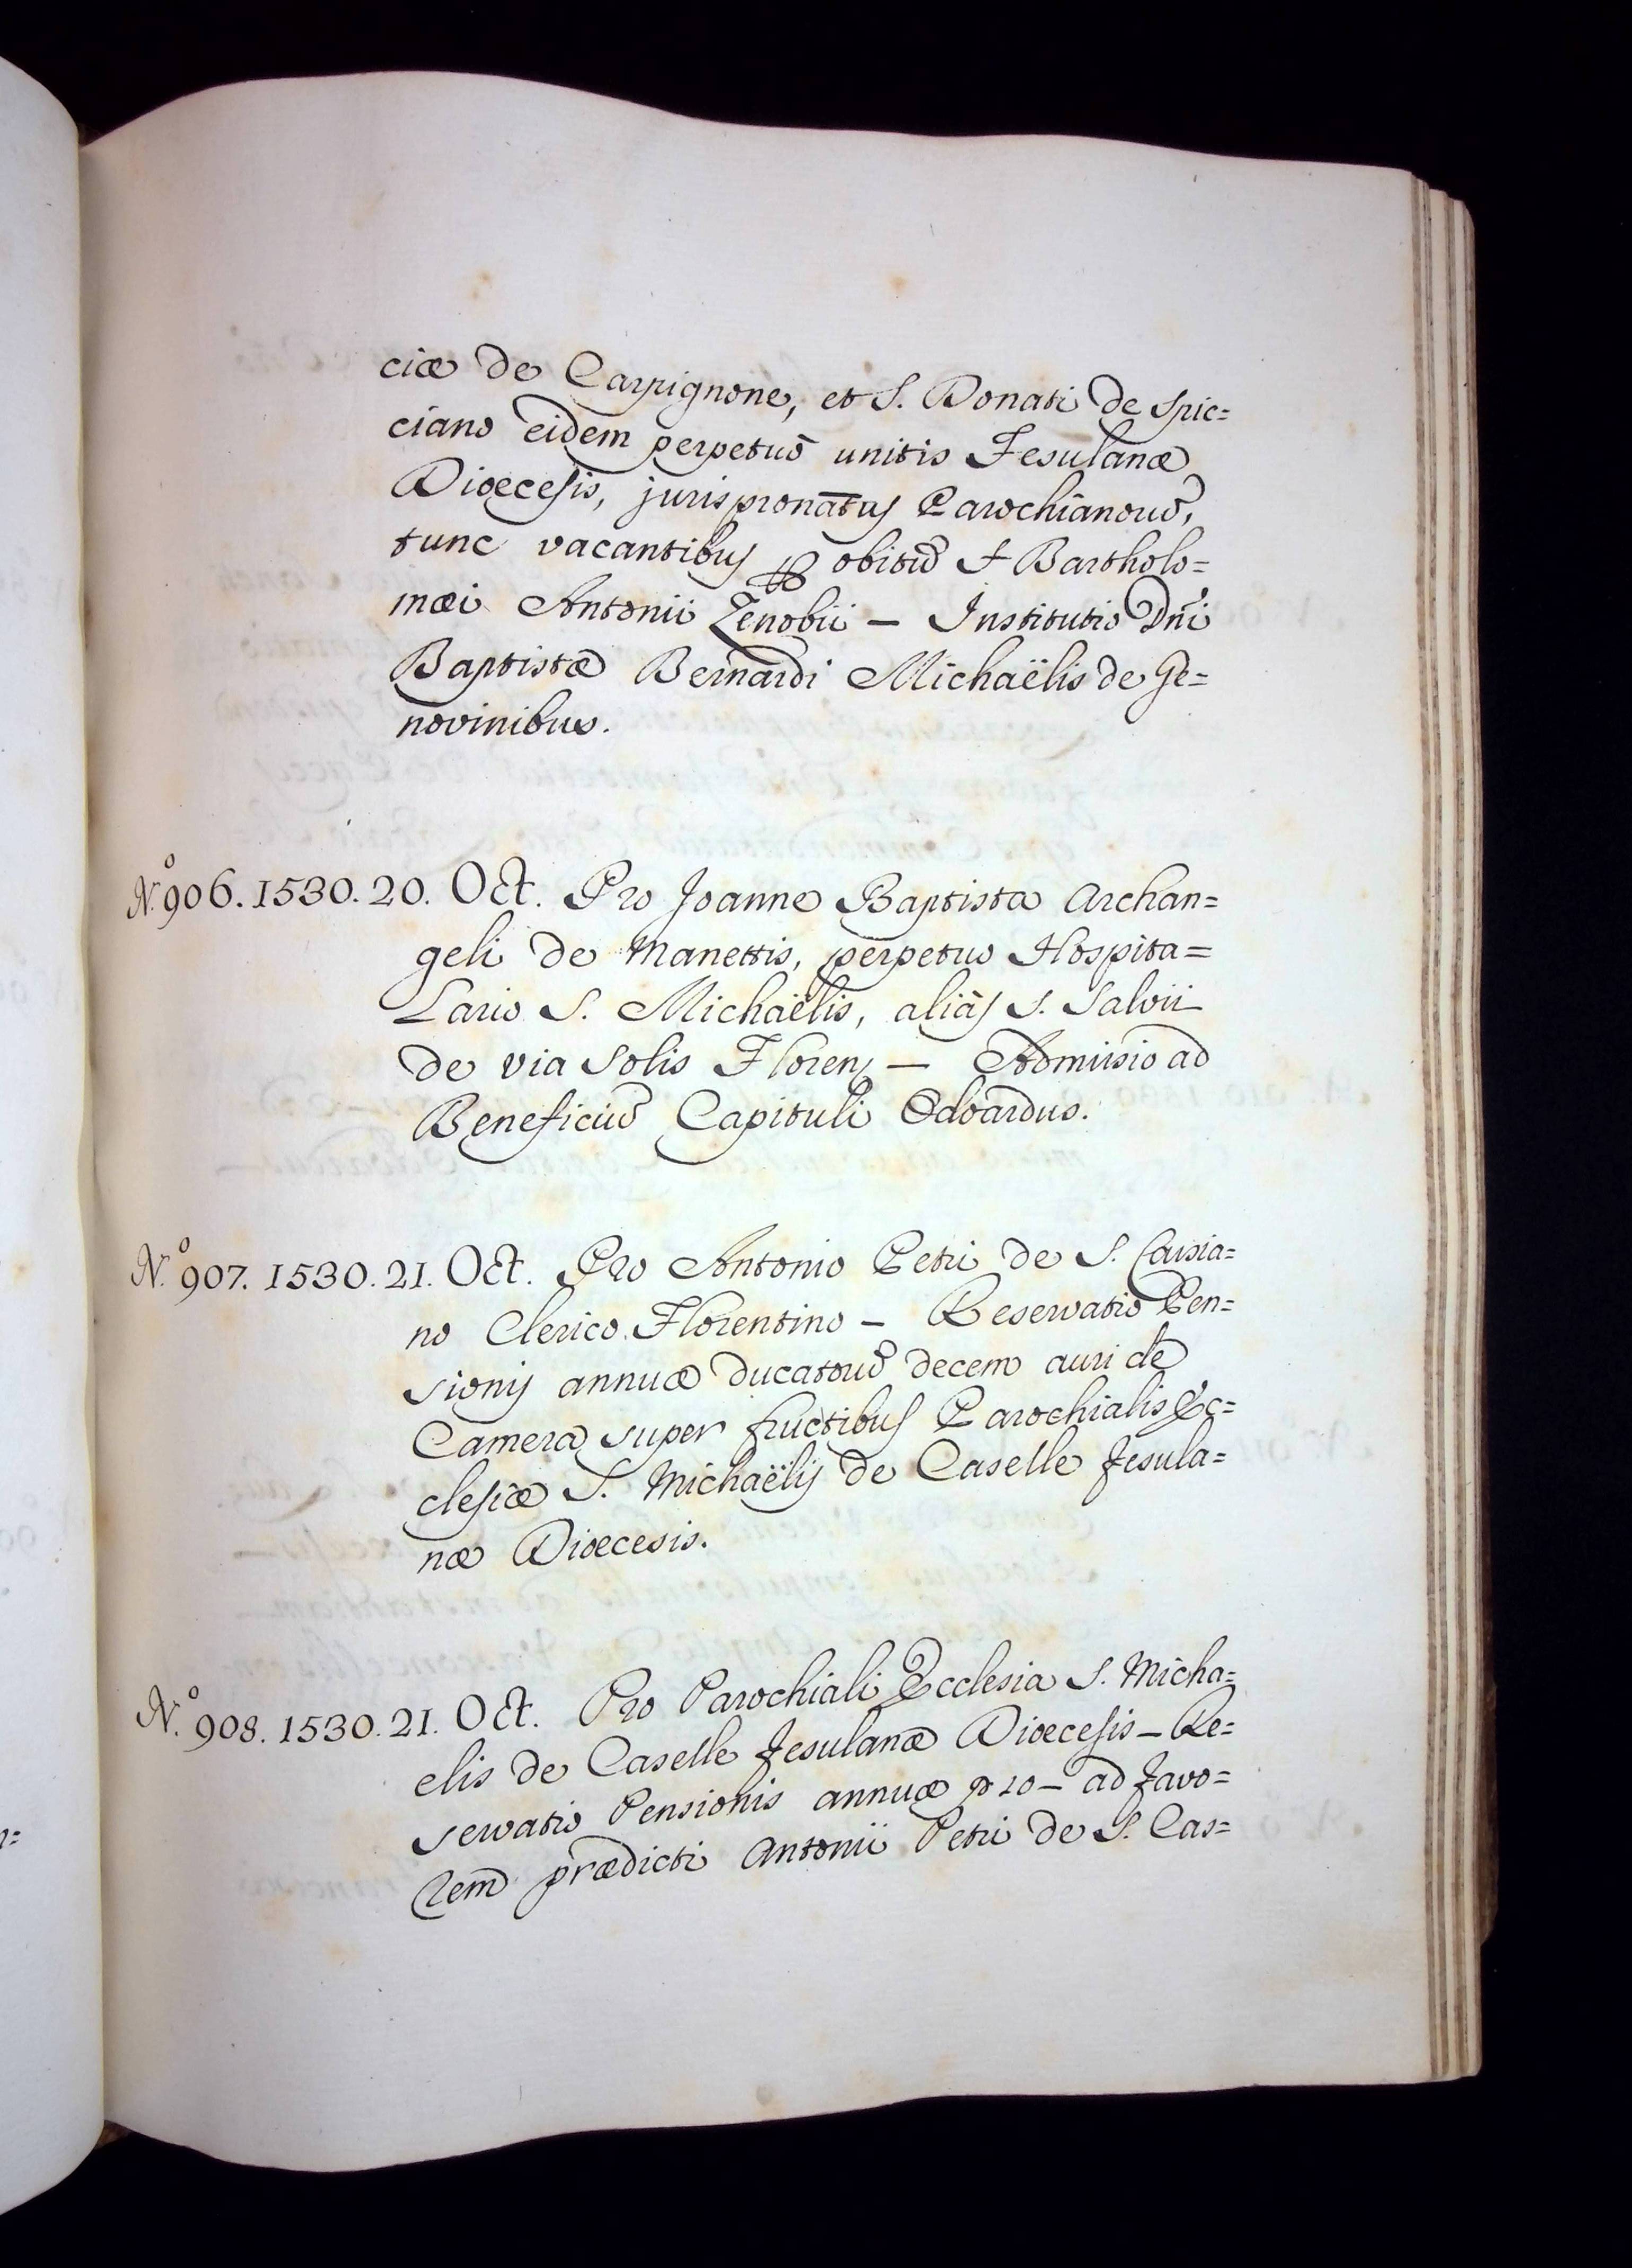 ciæ de Carpignone, et S. Donati de Spic=
ciano eidem perpetuo unitis Fesulanæ
Diœcesis, jurispronātus Parochianorū,
tunc vacantibus ꝑ obitū f. Bartholo=
mæi Antonii Zenobii — Institutio Dn̄i
Baptistæ Bernardi Michaëlis de Ge=
novinibus.
N.º 906. 1530. 20. Oct. Pro Joanne Baptista Archan=
geli de Manettis, perpetuo Hospita=
Lario S. Michaëlis, aliàs S. Salvii
de via Solis Floren; — Admissio ad
Beneficiū Capituli Odoardus.
N.º 907. 1530. 21. Oct. Pro Antonio Petri de S. Cassia=
no Clerico Florentino — Reservatio Pen=
sionis annuæ ducatorū decem auri de
Camera super fructibus Parochialis Ec=
clesiæ S. Michaëlis de Caselle Fesula=
næ Diœcesis.
N.º 908. 1530. 21. Oct. Pro Parochiali Ecclesia S. Micha=
elis de Caselle Fesulanæ Diœcesis — Re=
servatio Pensionis annuæ 10 — ad favo=
rem prædicti Antonii Petri de S. Cas=